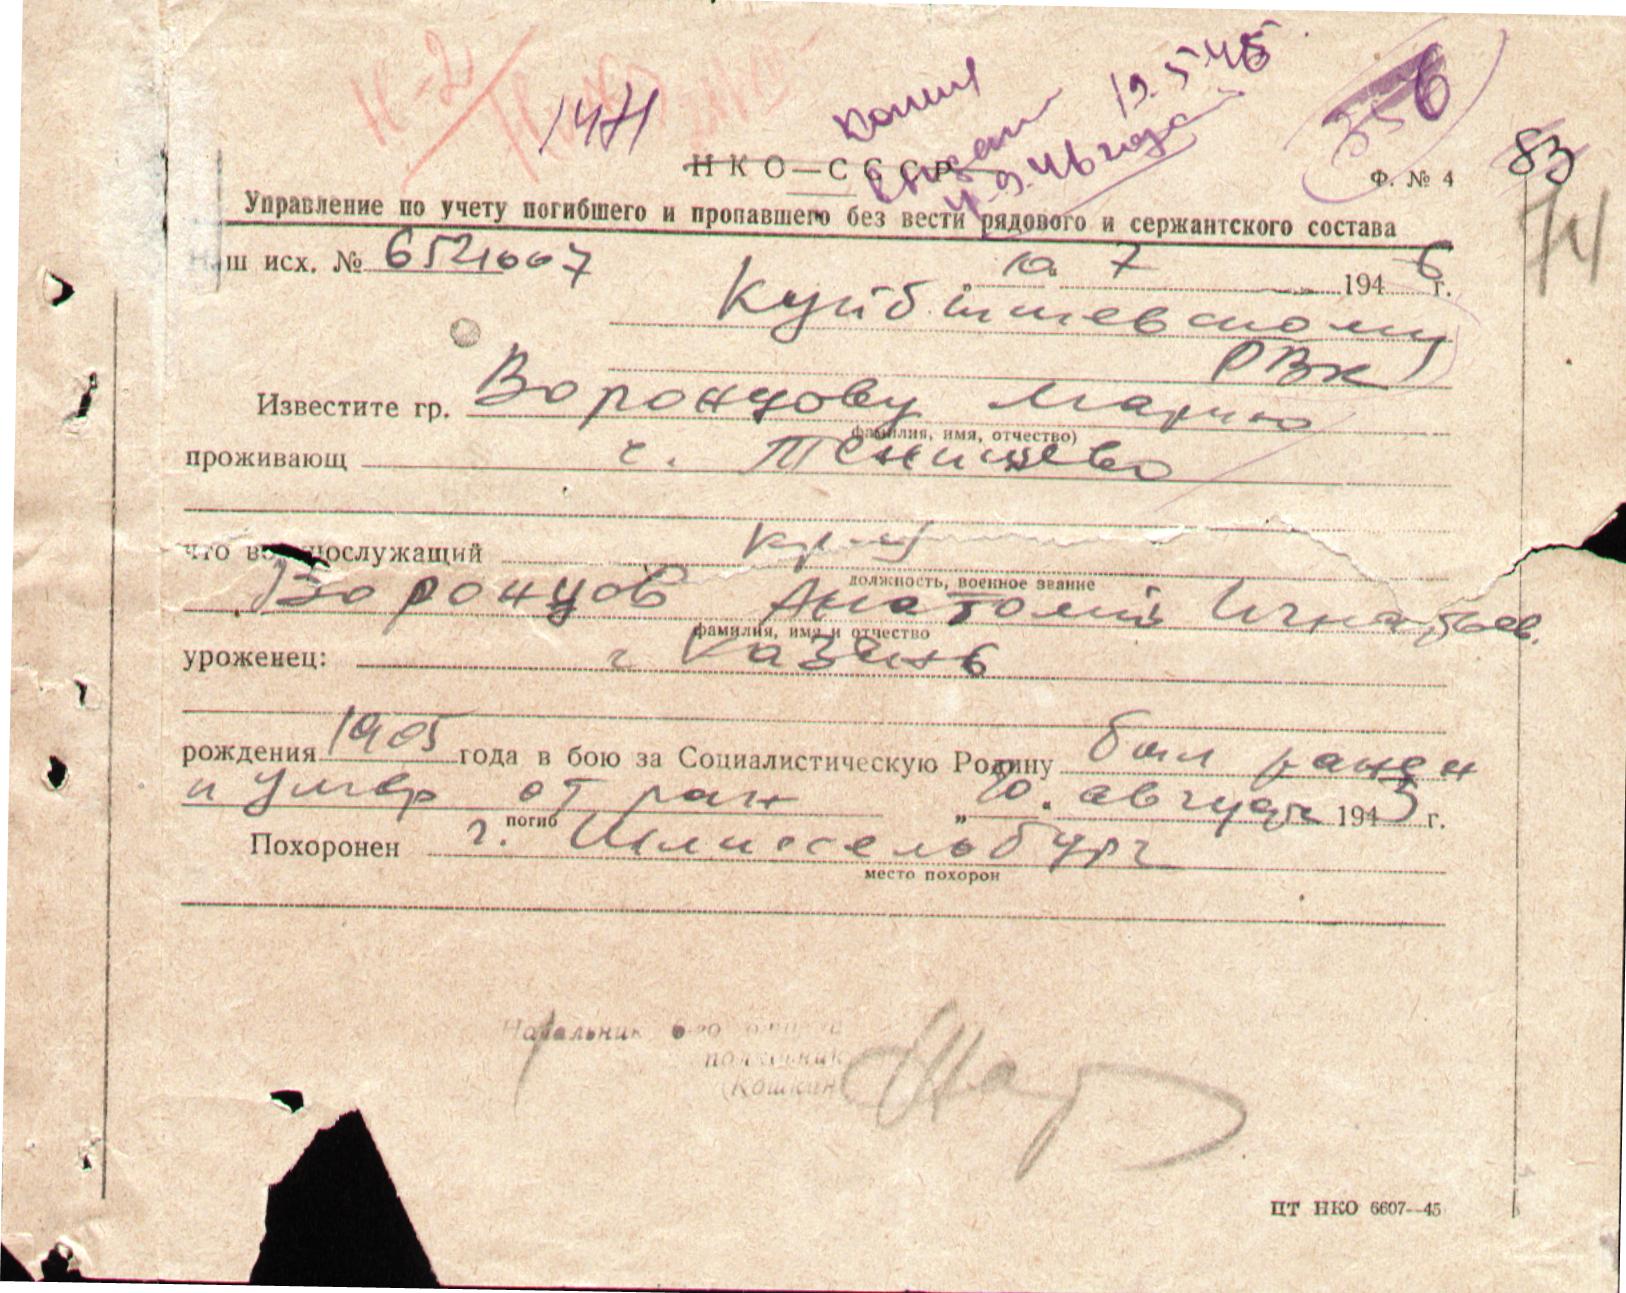 1471
Копия 19.5.46
4.9.46 года
83
74
НКО—СССР
Ф. № 4
Управление по учету погибшего и пропавшего без вести рядового и сержантского состава
Наш исх. №
10 7 1946 г.
Куйбышевскому
РВК
Известите гр. Воронцову Марию
фамилия, имя, отчество)
проживающ с. Тенишево
что военнослужащий кр-ц
должность, военное звание
Воронцов Анатолий Игнатьев.
фамилия, имя и отчество
уроженец: г Казань
рождения 1905 года в бою за Социалистическую Родину был ранен
и умер от ран „ . август 1943 г.
погиб
Похоронен г. Шлиссельбург
место похорон
Начальник 6-го отдела
полковник
(Кошкин
ЦТ НКО 6607—45